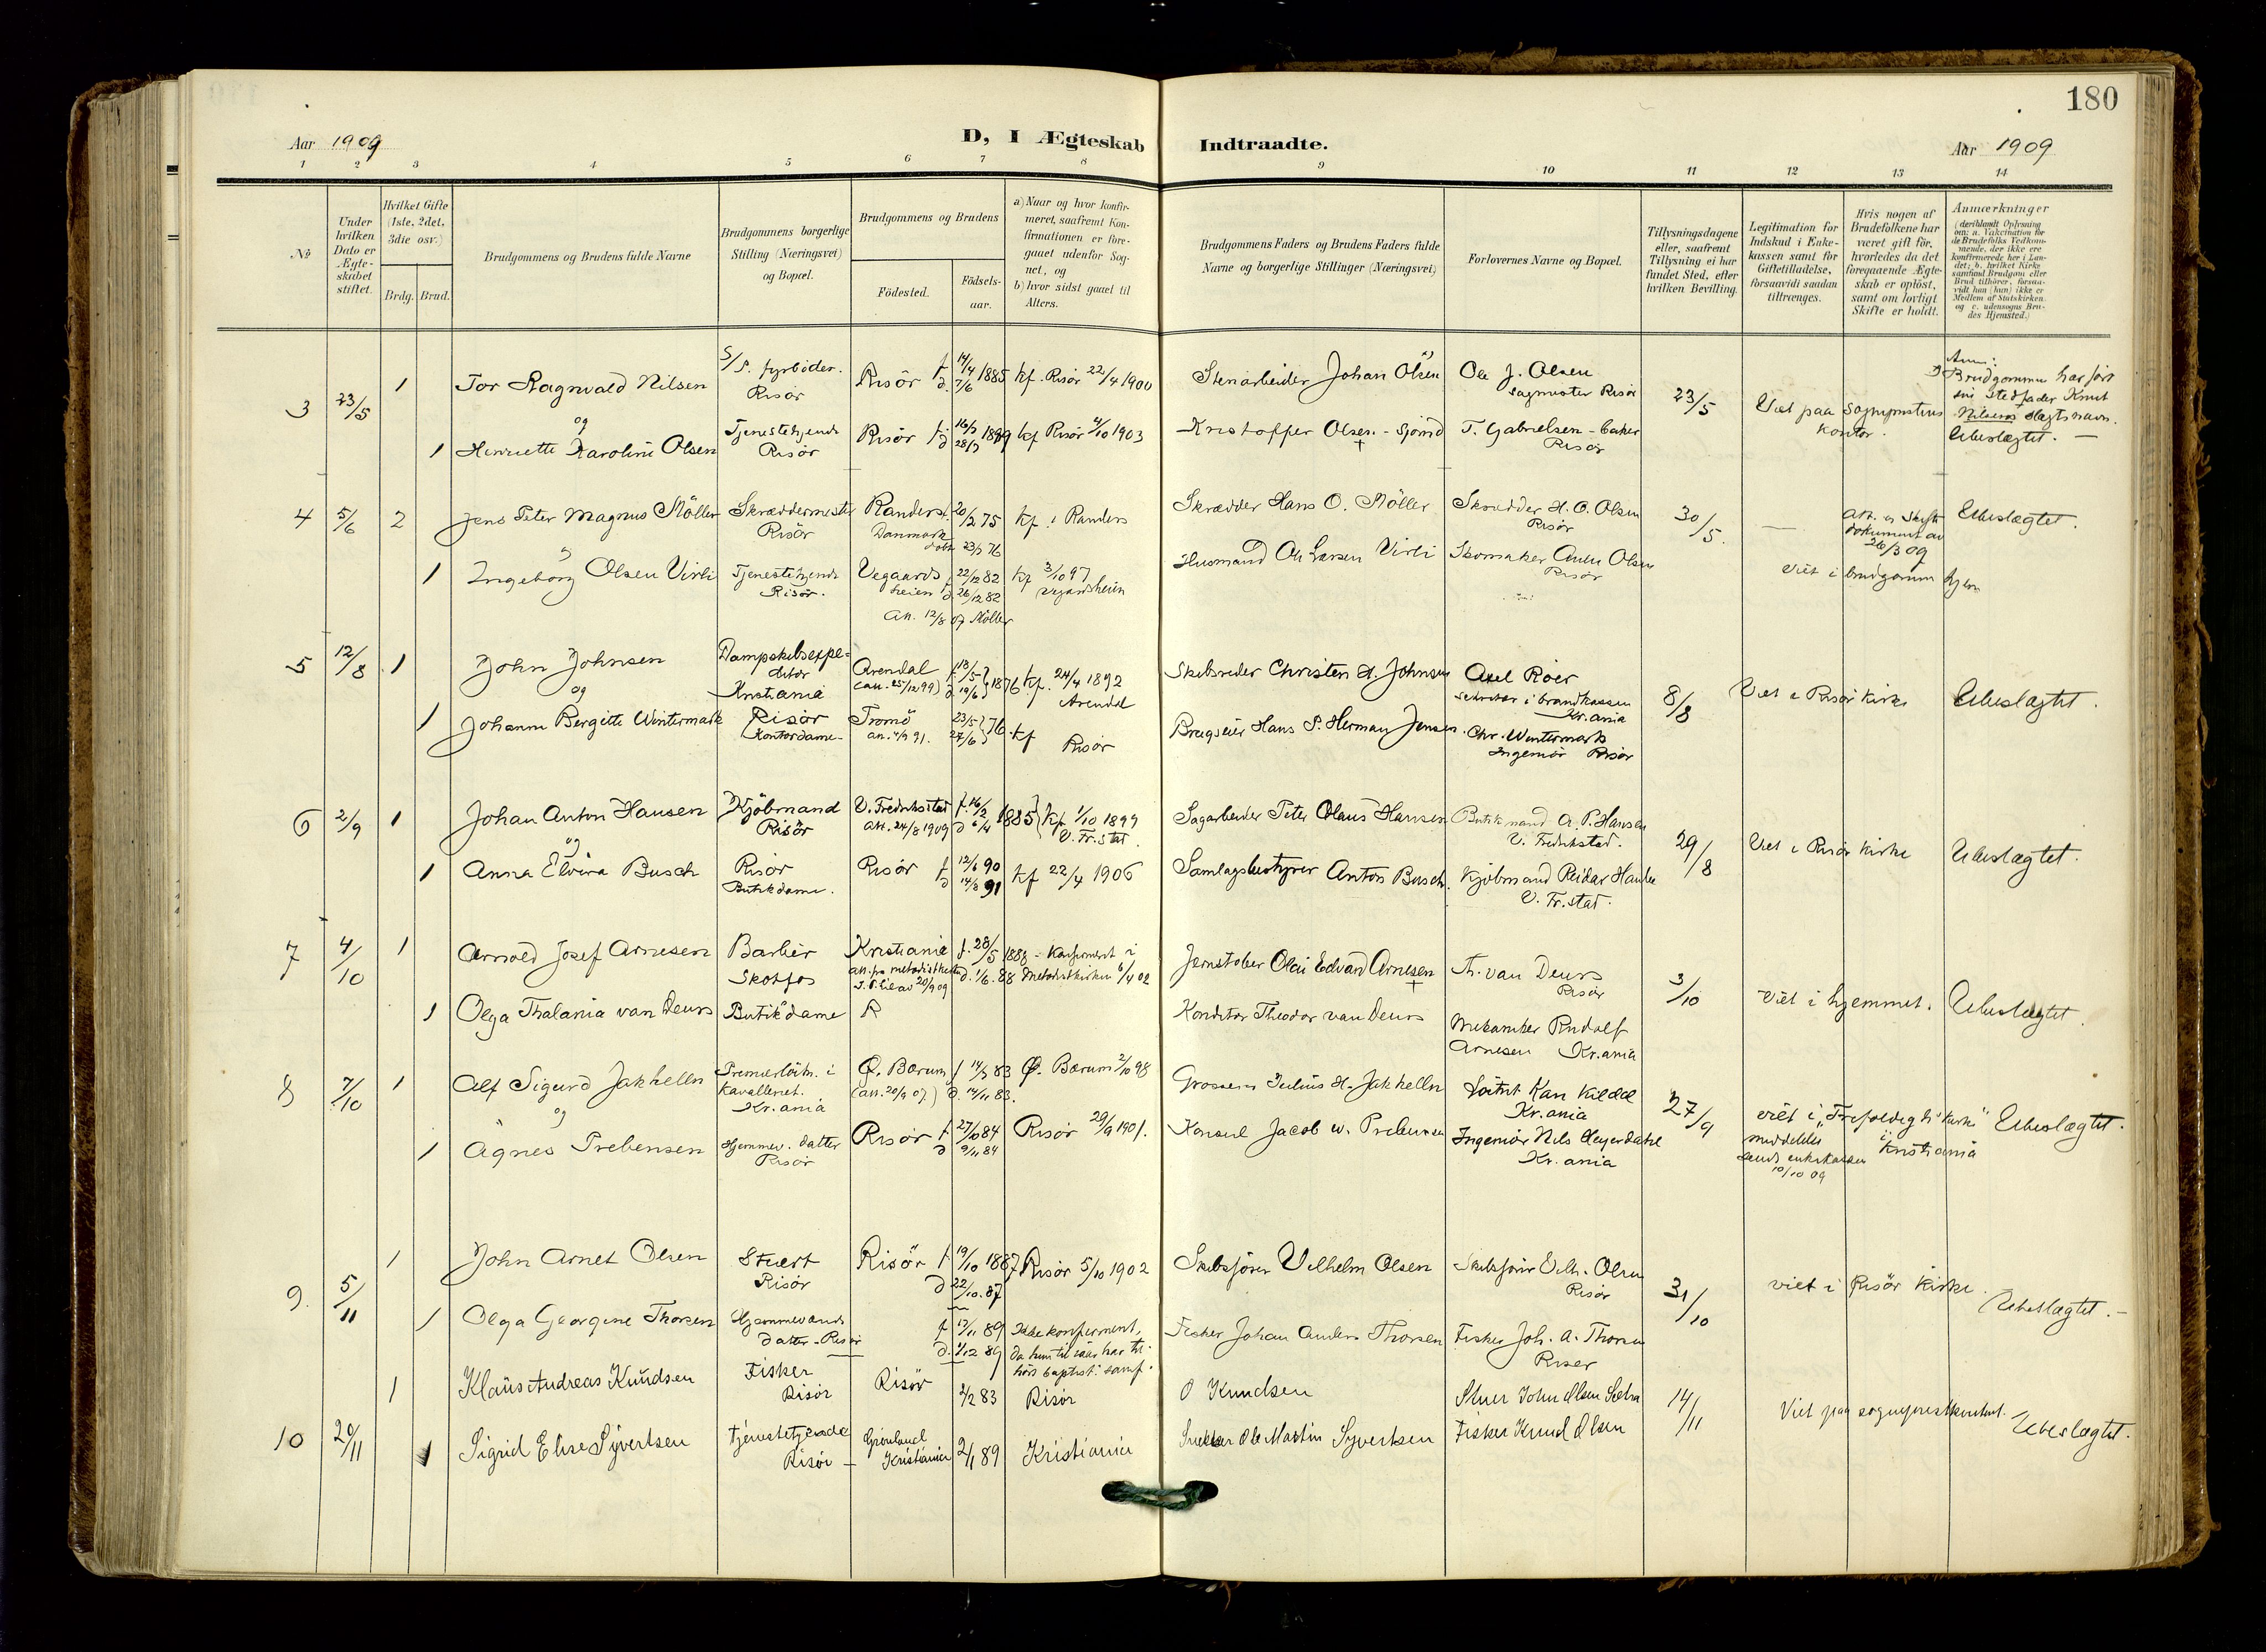 180
Aar 1909
D, I Ægteskab Indtraadte.
Aar 1909
1 2 3 4 5 6 7 8 9 10 11 12 13 14
No
Under hvilken Dato er Ægteskabet stiftet.
Hvilket Gifte (1ste, 2det, 3die osv.)
Brdg. Brud.
Brudgommens og Brudens fulde Navne
Brudgommens borgerlige Stilling (Næringsvei) og Bopæl.
Brudgommens og Brudens
Fødested.
Fødsels-aar.
a) Naar og hvor konfir-
meret, saafremt Kon-
firmationen er fore-
gaaet udenfor Sog-
net, og
b) hvor sidst gaaet til
Alters.
Brudgommens Faders og Brudens Faders fulde
Navne og borgerlige Stillinger (Næringsvei)
Forlovernes Navne og Bopæl.
Tillysningsdagene
eller, saafremt
Tillysning ei har
fundet Sted, efter
hvilken Bevilling.
Legitimation for
Indskud i Enke-
kassen samt for
Giftetilladelse,
forsaavidt saadan
tiltrænges.
Hvis nogen af
Brudefolkene har
været gift før,
hvorledes da det
foregaaende Ægte-
skab er opløst,
samt om lovligt
Skifte er holdt.
Anmærkninger
(deriblandt Oplysning
om: a. Vakcination for
de Brudefolks Vedkom-
mende, der ikke ere
konfirmerede her i Lan-
det; b. hvilket Kirke
samfund Brudgom eller
Brud tilhører, forsaa-
vidt han (hun) ikke er
Medlem af Statskirken.
og c. udensogns Bru-
des Hjemsted.)
3 23/5 1 Tor Ragnvald Nilsen S/S. fyrböder. Risör Risör f. 14/4 1885 d. 7/6 kf. Risör 22/4 1900 Stenarbeider Johan Olsen Ole J. Olsen sagmester Risör 23/5 Viet paa sogneprestens kontor.
Anm: Brudgommen har ført sin stedfader Knut Nilsens slægtsnavn. Ubeslægtet. —
og
1 Henriette Karoline Olsen Tjenestetjende Risör Risör kf Risör 4/10 1903 Kristoffer Olsen - Sjömd † T. Gabrielsen - baker Risör
4 5/6 2 Jens Peter Magnus Möller Skræddermester Risör Randers Danmark f. 20/2 75 döbt 23/3 76 kf. i Randers Skrædder Hans O. Möller Skrædder H. O. Olsen Risör 30/5. — att. og skifte dokument av 26/3 09 Ubeslægtet.
1 Ingeborg Olsen Virli Tjenestetjende Risör. Vegaards heien f. 22/12 82 d. 26/12 82 kf 3/10 97 Vegaardsheien Husmand Ole Larsen Virli Skomaker Olsen Risör Viet i brudgommens hjem
Att. 12/8 07 Möller
5 12/8 1 John Johnsen Dampskibsexpe-ditör Kristiania Arendal (att. 25/12 99) f. 13/5 d. 19/6 1876 kf. 24/4 1892 Arendal Skibsreder Christen H. Johnsen Axel Röer sekretær i brandkassen Kr.ania 8/8 Viet i Risör Kirke Ubeslægtet.
og
1 Johanne Bergitte Wintermark Risör Kontordame- Tromö 23/5 27/6 76. kf Risör Brugseier Hans P. Herman Jensen. Chr. Wintermark Ingeniör Risör
6 2/9 1 Johan Anton Hansen Kjöbmand Risör V. Fredrikstad att. 24/8 1909 f. 16/2 d 6/4 1885 kf. 1/10 1899 V. Fr.stad. Sagarbeider Peter Olaus Hansen Butikmand A. P. Hansen V. Fredrikstad. 29/8 Viet i Risör Kirke Ubeslægtet.
og
1 Anna Elvira Busch Risör Butikdame. Risör f 12/1 90 d 14/3 91 kf 22/4 1906 Samlagsbestyrer Anton Busch. Kjöbmand Reidar Hansen V. Fr.stad.
7 4/10 1 Arnold Josef Arnesen Barber Skotfos Kristiania att. fra metodistkirken 20/9 09 f. 28/5 1888 d. 1/6. 88 - Konfirmert i Metodistkirken 6/4 02 Jernstöber Olai Edvard Arnesen † Th. van Deurs Risör 3/10 Viet i hjemmet. Ubeslægtet.
1 Olga Thalania van Deurs Butikdame R Konditor Theodor van Deurs Mekaniker Rudolf Arnesen Kr.ania
8 7/10 1 Alf Sigurd Jakhelln Premierlöitn. i kavalleriet. Kr.ania Ø. Bærum (att. 20/9 07.) f 14/3 83 d. 14/11 83. Ø. Bærum 2/10 98 Grosserer Julius H. Jakhelln Löitnt Karl Kildal Kr.ania 27/9 viet i "Trefoldigh. kirke" i Kristiania Ubeslægtet.
meddelelse sendt enkekassen 10/10 09
og
1 Agnes Prebensen Hjemmev. datter Risör Risör f 27/10 84 d 9/11 84 Risör 29/9 1901. Konsul Jacob W. Prebensen Ingeniör Nils Meyerdahl Kr.ania
9. 5/11 1 John Arnet Olsen Stuert Risör Risör f 19/10 1887 d 22/10. 87 Risör 5/10 1902 Skibsförer Vilhelm Olsen Skibsförer Vilh. Olsen Risör 31/10 viet i Risör Kirke. Ubeslægtet. -
1 Olga Georgine Thorsen Hjemmeværende datter - Risör f 17/11 89 d. 1/12 89 Ikke konfirmert, da hun til isaar har til-hört baptist. samf. Fisker Johan Anders Thorsen Fisker Joh. A. Thorsen Risør
10 20/11 1 Klaus Andreas Knudsen Fisker Risör Risör 2/2 83 Risör O Knudsen Stuer John Olsen 14/11 Viet paa sogneprestkontoret. Ubeslægtet.
1 Sigrid Elise Syvertsen tjenestetjende Risör - Grønland Kristiania 2/1 89 Kristiania Snekker Ole Martin Syvertsen Fisker Knud Olsen